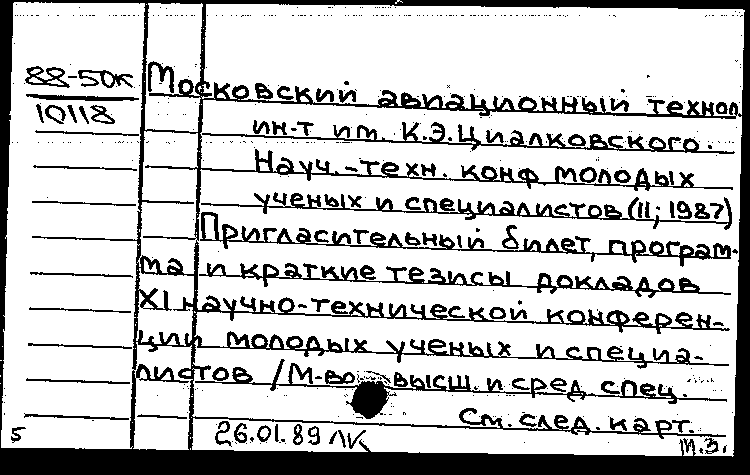 88-50к
10118
Московский авиационный технол.
ин-т им. К.Э.Циалковского.
Науч.-техн. конф. молодых
ученых и специалистов (II; 1987)
Пригласительный билет, програм-
ма и краткие тезисы докладов
XI научно-технической конферен-
ции молодых ученых и специа-
листов / М-во высш. и сред. спец.
См. след. карт.
5
26.01.89 ЛК
т.з.